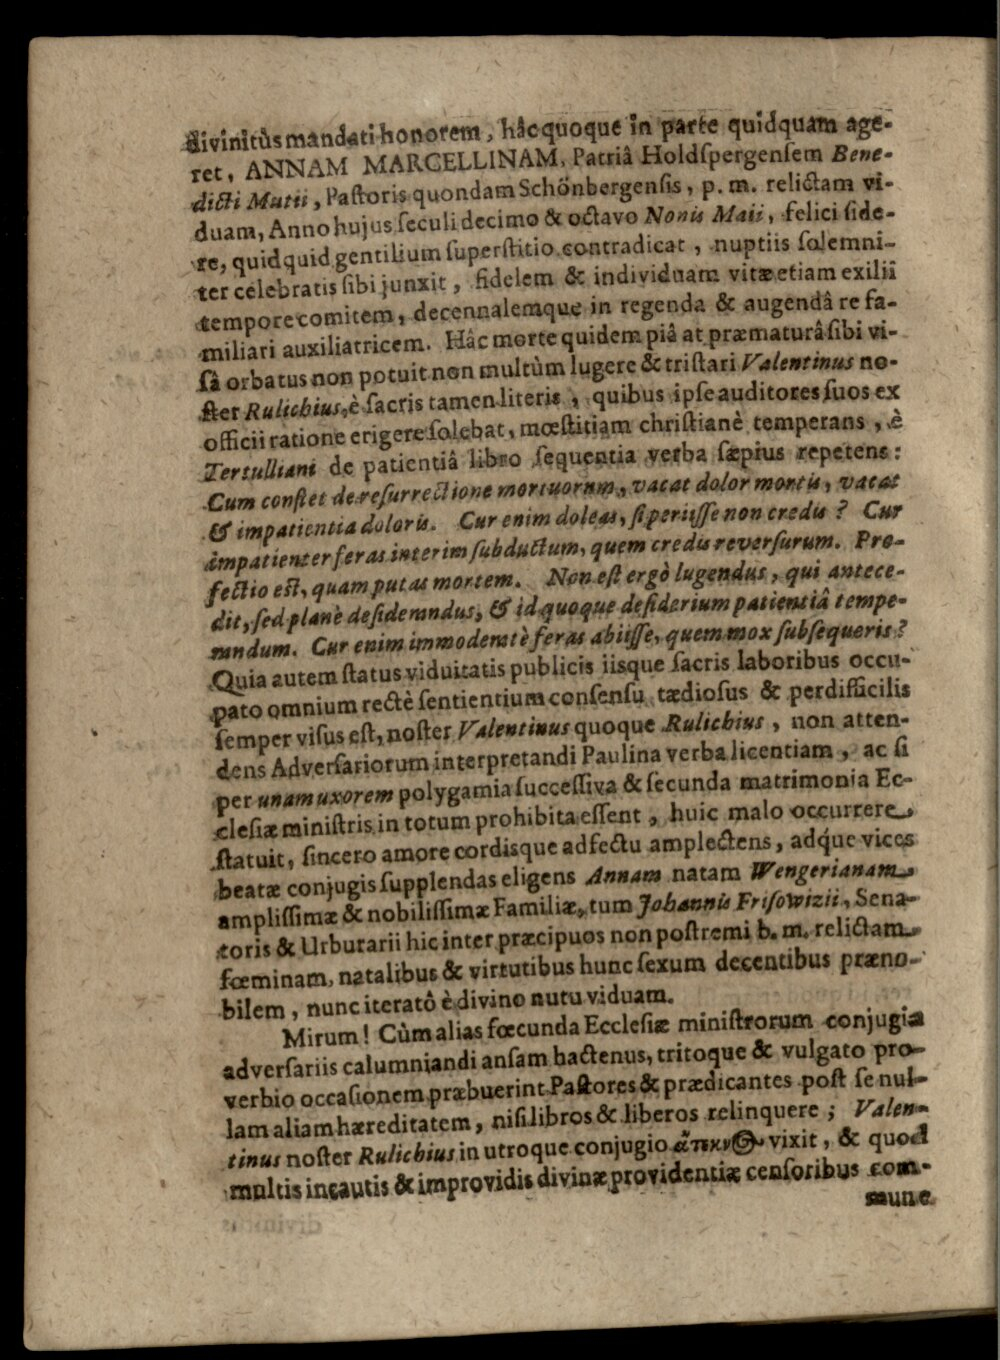 divinitùs mandati honorem, hâc quoque in parte quidquam age-
ret, ANNAM MARCELLINAM, Patriâ Holdſpergenſem Bene-
dicti Mutii, Paſtoris quondam Schönbergenſis, p. m. relictam vi-
duam, Anno hujus ſeculi decimo & octavo Nonis Maii, felici ſide-
re, quidquid gentilium ſuperſtitio contradicat, nuptiis ſolemni-
ter celebratis ſibi junxit, fidelem & individuam vitæ etiam exilii
tempore comitem, decennalemque in regenda & augendâ re fa-
miliari auxiliatricem. Hâc morte quidem piâ at præmaturâ ſibi vi-
ſâ orbatus non potuit non multùm lugere & triſtari Valentinus no-
ſter Rulichius, è ſacris tamen literis, quibus ipſe auditores ſuos ex
officii ratione erigere ſolebat, mœſtitiam chriſtianè temperans, è
Tertulliani de patientiâ libro ſequentia verba ſæpius repetens:
Cum conſtet de reſurrectione mortuorum, vacat dolor mortis, vacat
& impatientia doloris. Cur enim doleas, ſi periiſſe non credis? Cur
impatienter feras interim ſubductum, quem credis reverſurum. Pro-
fectio eſt, quam putas mortem. Non eſt ergò lugendus, qui antece-
dit, ſed planè deſiderandus, & id quoque deſiderium patientiâ tempe-
randum. Cur enim immoderatè feras abiiſſe, quem mox ſubſequeris?
Quia autem ſtatus viduitatis publicis iisque ſacris laboribus occu-
pato omnium rectè ſentientium conſenſu tædioſus & perdifficilis
ſemper viſus eſt, noſter Valentinus quoque Rulichius, non atten-
dens Adverſariorum interpretandi Paulina verba licentiam, ac ſi
per unam uxorem polygamia ſucceſſiva & ſecunda matrimonia Ec-
cleſiæ miniſtris in totum prohibita eſſent, huic malo occurrere
ſtatuit, ſincero amore cordisque adfectu amplectens, adq́ue vices
beatæ conjugis ſupplendas eligens Annam natam Wengerianam
ampliſſimæ & nobiliſſimæ Familiæ, tum Johannis Friſowizii, Sena-
toris & Urburarii hic inter præcipuos non poſtremi b. m. relictam
fœminam, natalibus & virtutibus hunc ſexum decentibus præno-
bilem, nunc iteratô è divino nutu viduam.
Mirum! Cùm alias fœcunda Eccleſiæ miniſtrorum conjugia
adverſariis calumniandi anſam hactenus, tritoque & vulgato pro-
verbio occaſionem præbuerint Paſtores & prædicantes poſt ſe nul-
lam aliam hæreditatem, niſi libros & liberos relinquere; Valen-
tinus noſter Rulichius in utroque conjugio ἄτεκνος vixit, & quod
multis incautis & improvidis divinæ providentiæ cenſoribus com-
mune